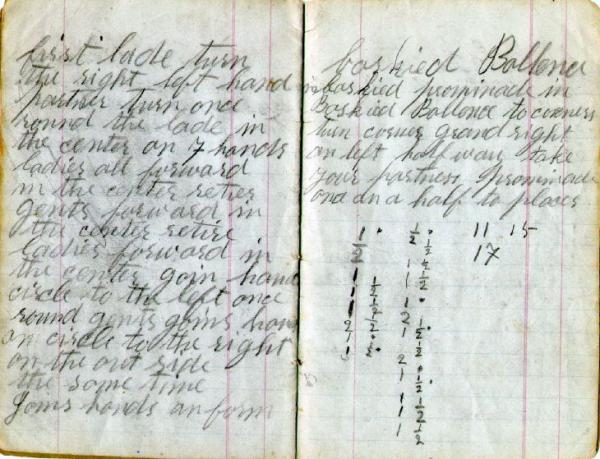 first lade turn
the right left hand
partner turn once
round the lade in
the center an 7 hands
ladies all forward
in the center retier
gents forward in
the center retire
ladies forward in
the center goin hand
circle to the left once
round gents goins hand
an circle to the right
on the out side
the same time
Joins hands an form
baskied Ballence
in baskied prominade in
Baskied Ballence to corners
turn corner grand right
an left half way take
your partners prominade
one an a half to places
1 1/2 11 15
1/2 1/2 17
1 1 1/2
1 1/2 1
1 1/2 2
2 1/2 1 1/2
1 1/2
1 1/2 2
1 1/2
1
1 1/2
1 1/2